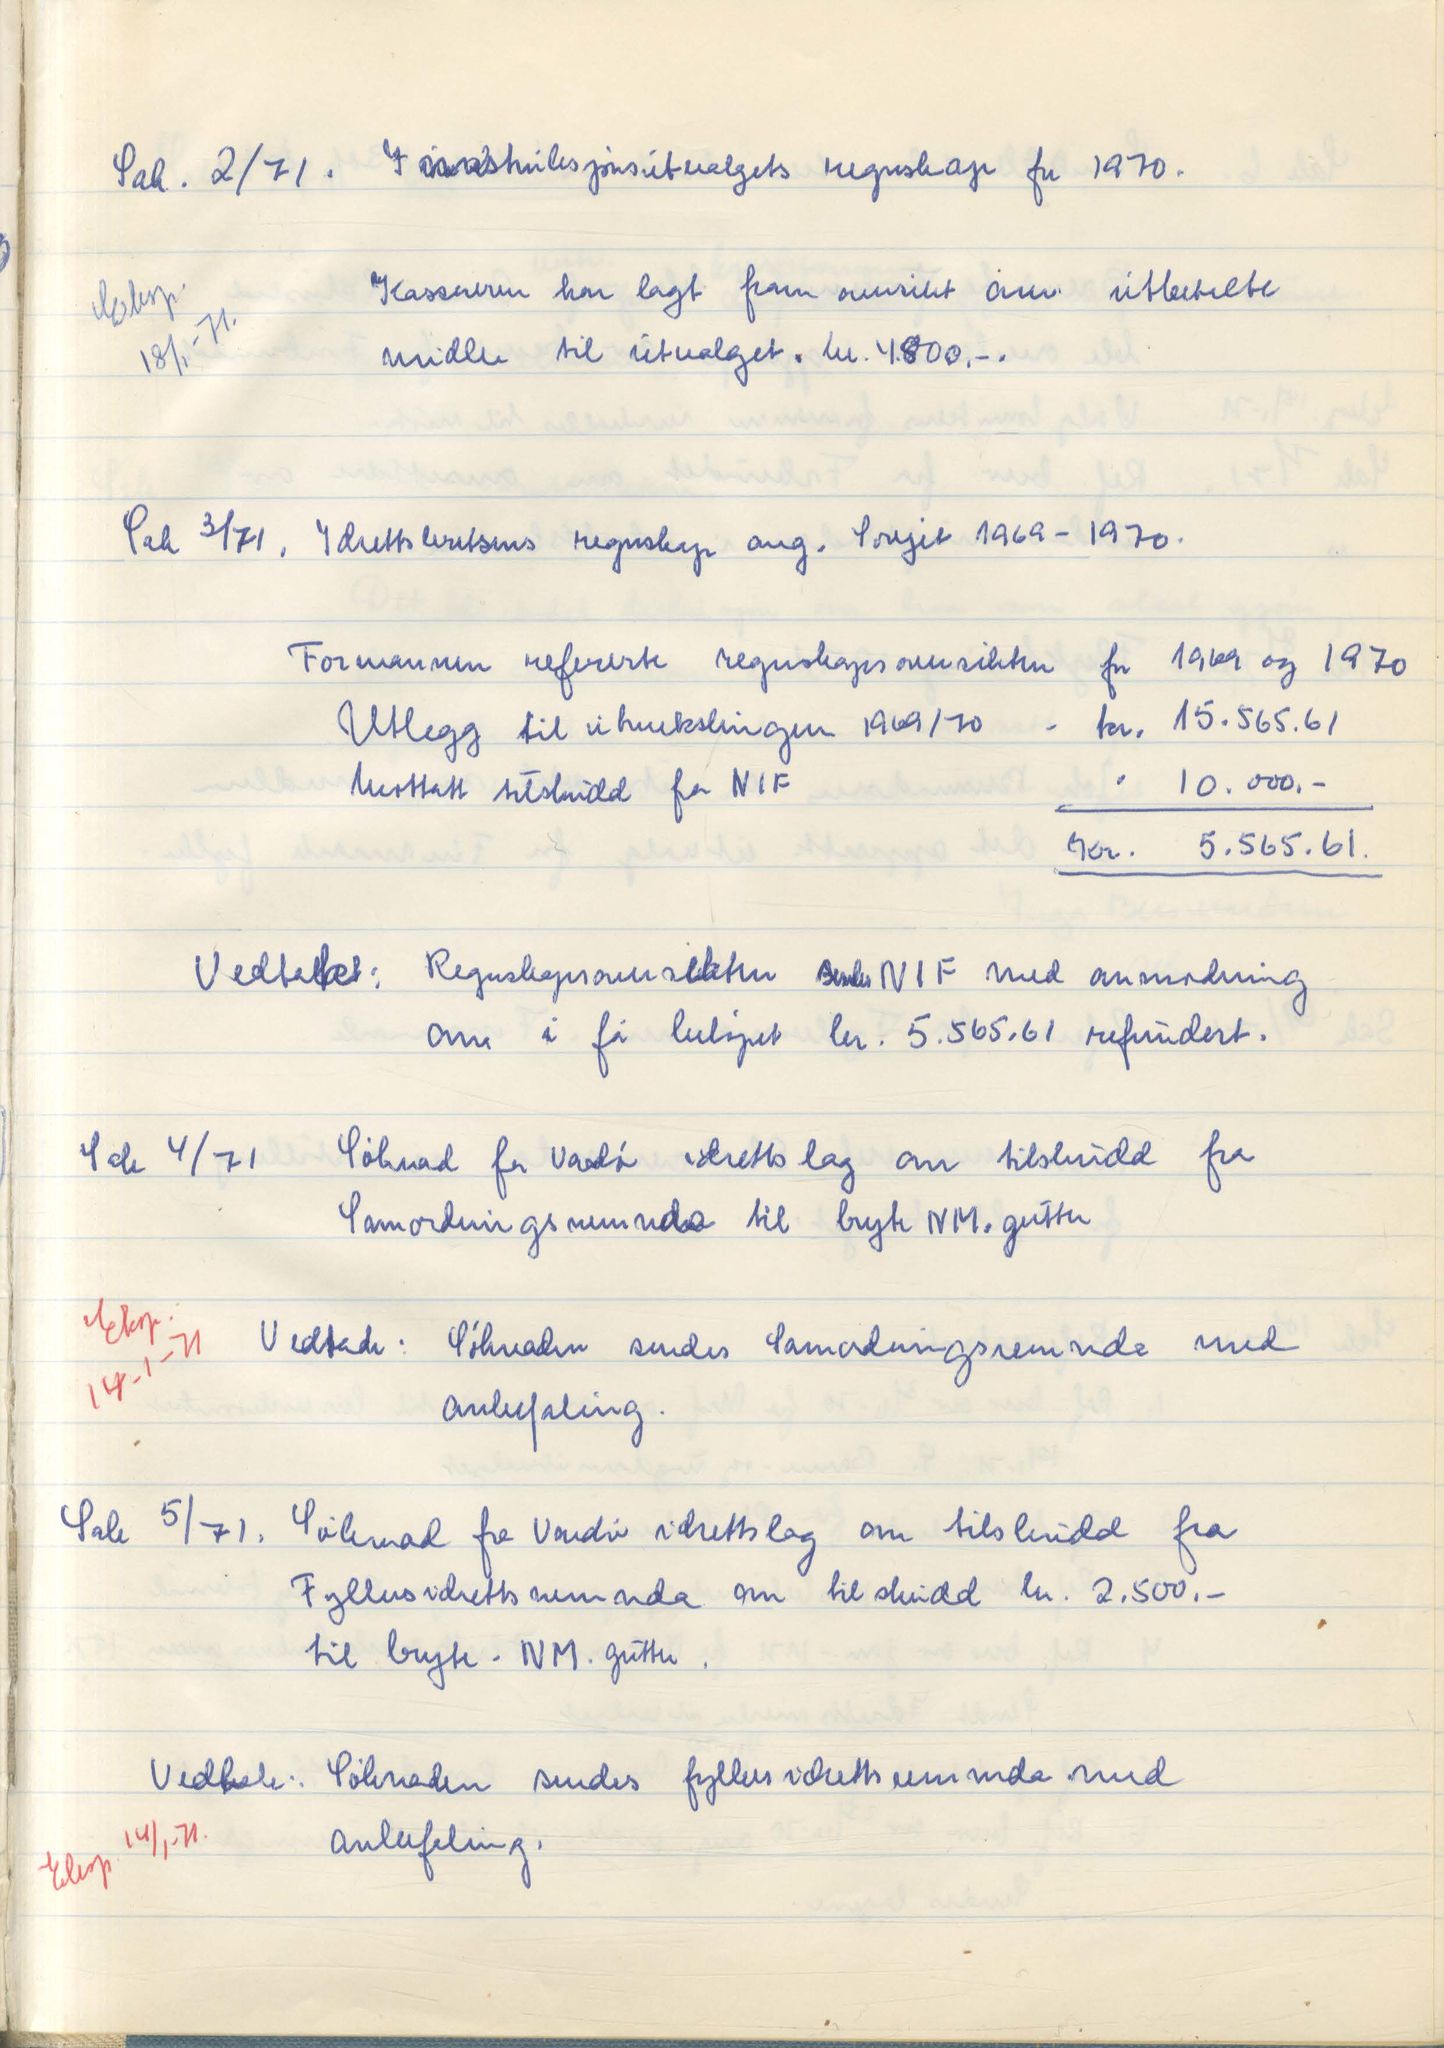 Sak. 2/71. Instruksjonsutvalgets regnskap for 1970.
Eksp.
18/1-71.
Kassereren har lagt fram oversikt over utbetalte
midler til utvalget. kr. 4.800.-.
Sak 3/71. Idrettskretsens regnskap ang. Sovjet 1969-1970.
Formannen refererte regnskapsoversikten for 1969 og 1970
Utlegg til utvekslingen 1969/70 - kr. 15.565.61
Mottatt tilskudd fra NIF " 10.000.-
Kr. 5.565.61.
Vedtak: Regnskapsoversikten sendes NIF med anmodning
om å få beløpet kr. 5.565.61 refundert.
Sak 4/71 Söknad fra Vardö idrettslag om tilskudd fra
Samordningsnemnda til bryte NM. gutter
Eksp.
14-1-71
Vedtak: Söknaden sendes Samordningsnemnda med
anbefaling.
Sak 5/71. Söknad fra Vardö idrettslag om tilskudd fra
Fylkesidrettsnemnda om tilskudd kr. 2.500.-
til bryte - NM. gutter.
Vedtak: Söknaden sendes fylkesidrettsnemnda med
anbefaling.
Eksp. 14/1-71.